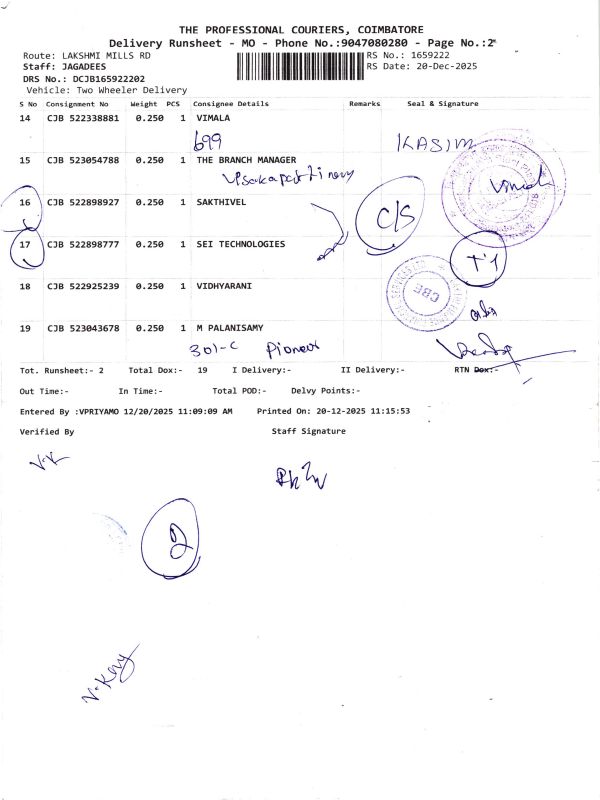 THE PROFESSIONAL COURIERS, COIMBATORE
Delivery Runsheet - MO - Phone No.:9047080280 - Page No.:2
Route: LAKSHMI MILLS RD RS No.: 1659222
Staff: JAGADEES RS Date: 20-Dec-2025
DRS No.: DCJB165922202
Vehicle: Two Wheeler Delivery
S No Consignment No Weight PCS Consignee Details Remarks Seal & Signature
14 CJB 522338881 0.250 1 VIMALA
699 KASIM
15 CJB 523054788 0.250 1 THE BRANCH MANAGER
16 CJB 522898927 0.250 1 SAKTHIVEL C/S
17 CJB 522898777 0.250 1 SEI TECHNOLOGIES
18 CJB 522925239 0.250 1 VIDHYARANI
CBE
19 CJB 523043678 0.250 1 M PALANISAMY
301-C Pioneer
Tot. Runsheet:- 2 Total Dox:- 19 I Delivery:- II Delivery:- RTN Dox:-
Out Time:- In Time:- Total POD:- Delvy Points:-
Entered By :VPRIYAMO 12/20/2025 11:09:09 AM Printed On: 20-12-2025 11:15:53
Verified By Staff Signature
2